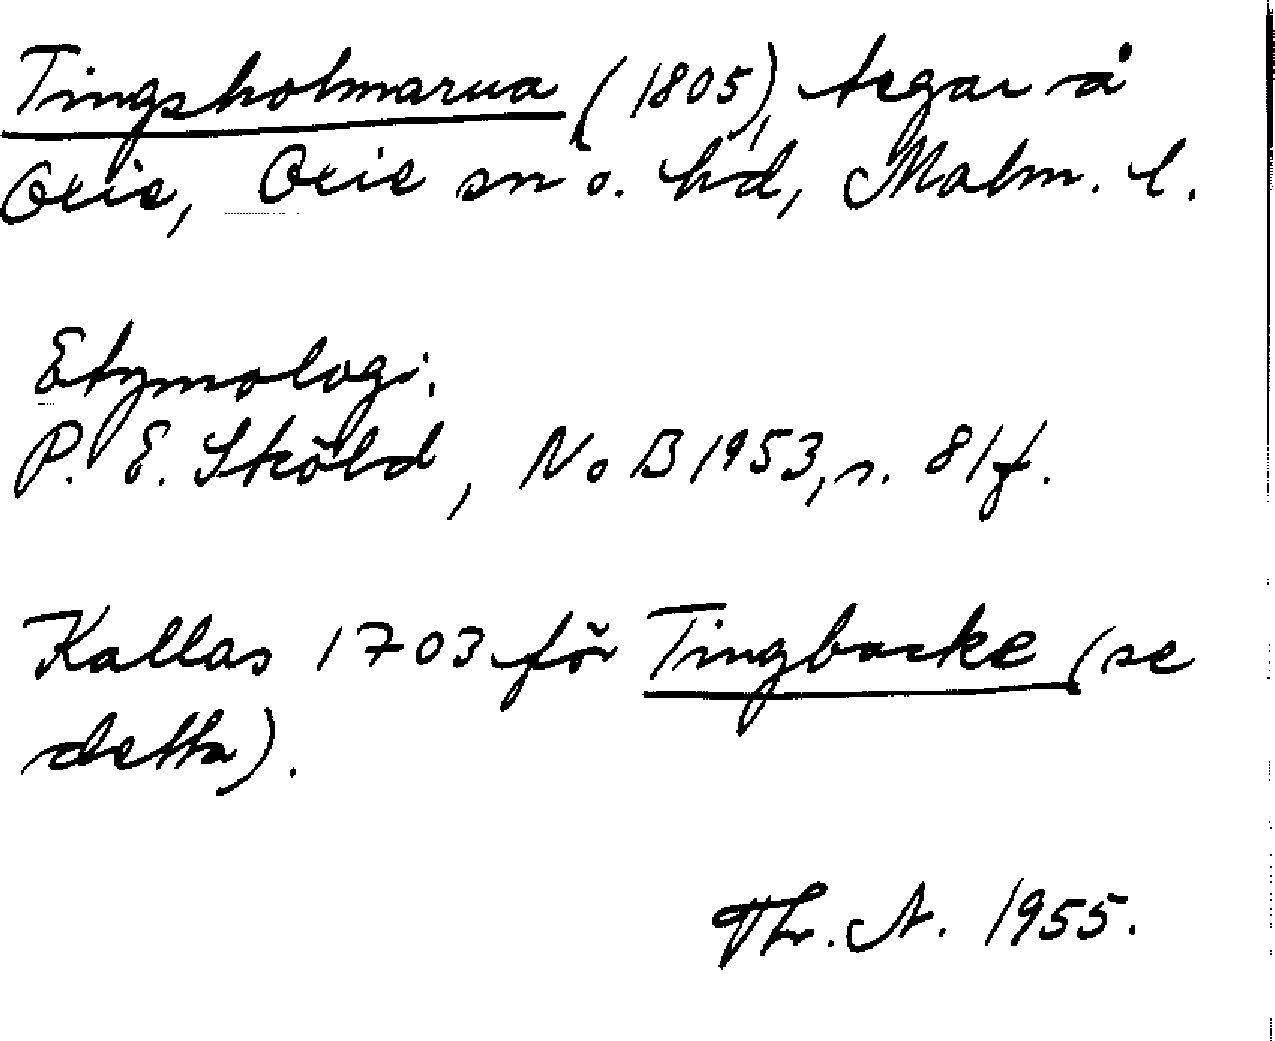 Tingsholmarna (1805), tegar å
Oxie, Oxie sn o. hd, Malm. l.
Etymologi.
P. E. Sköld, NoB 1953, s. 81 f.
Kallas 1703 för Tingbacke (se
detta).
Th. A. 1955.